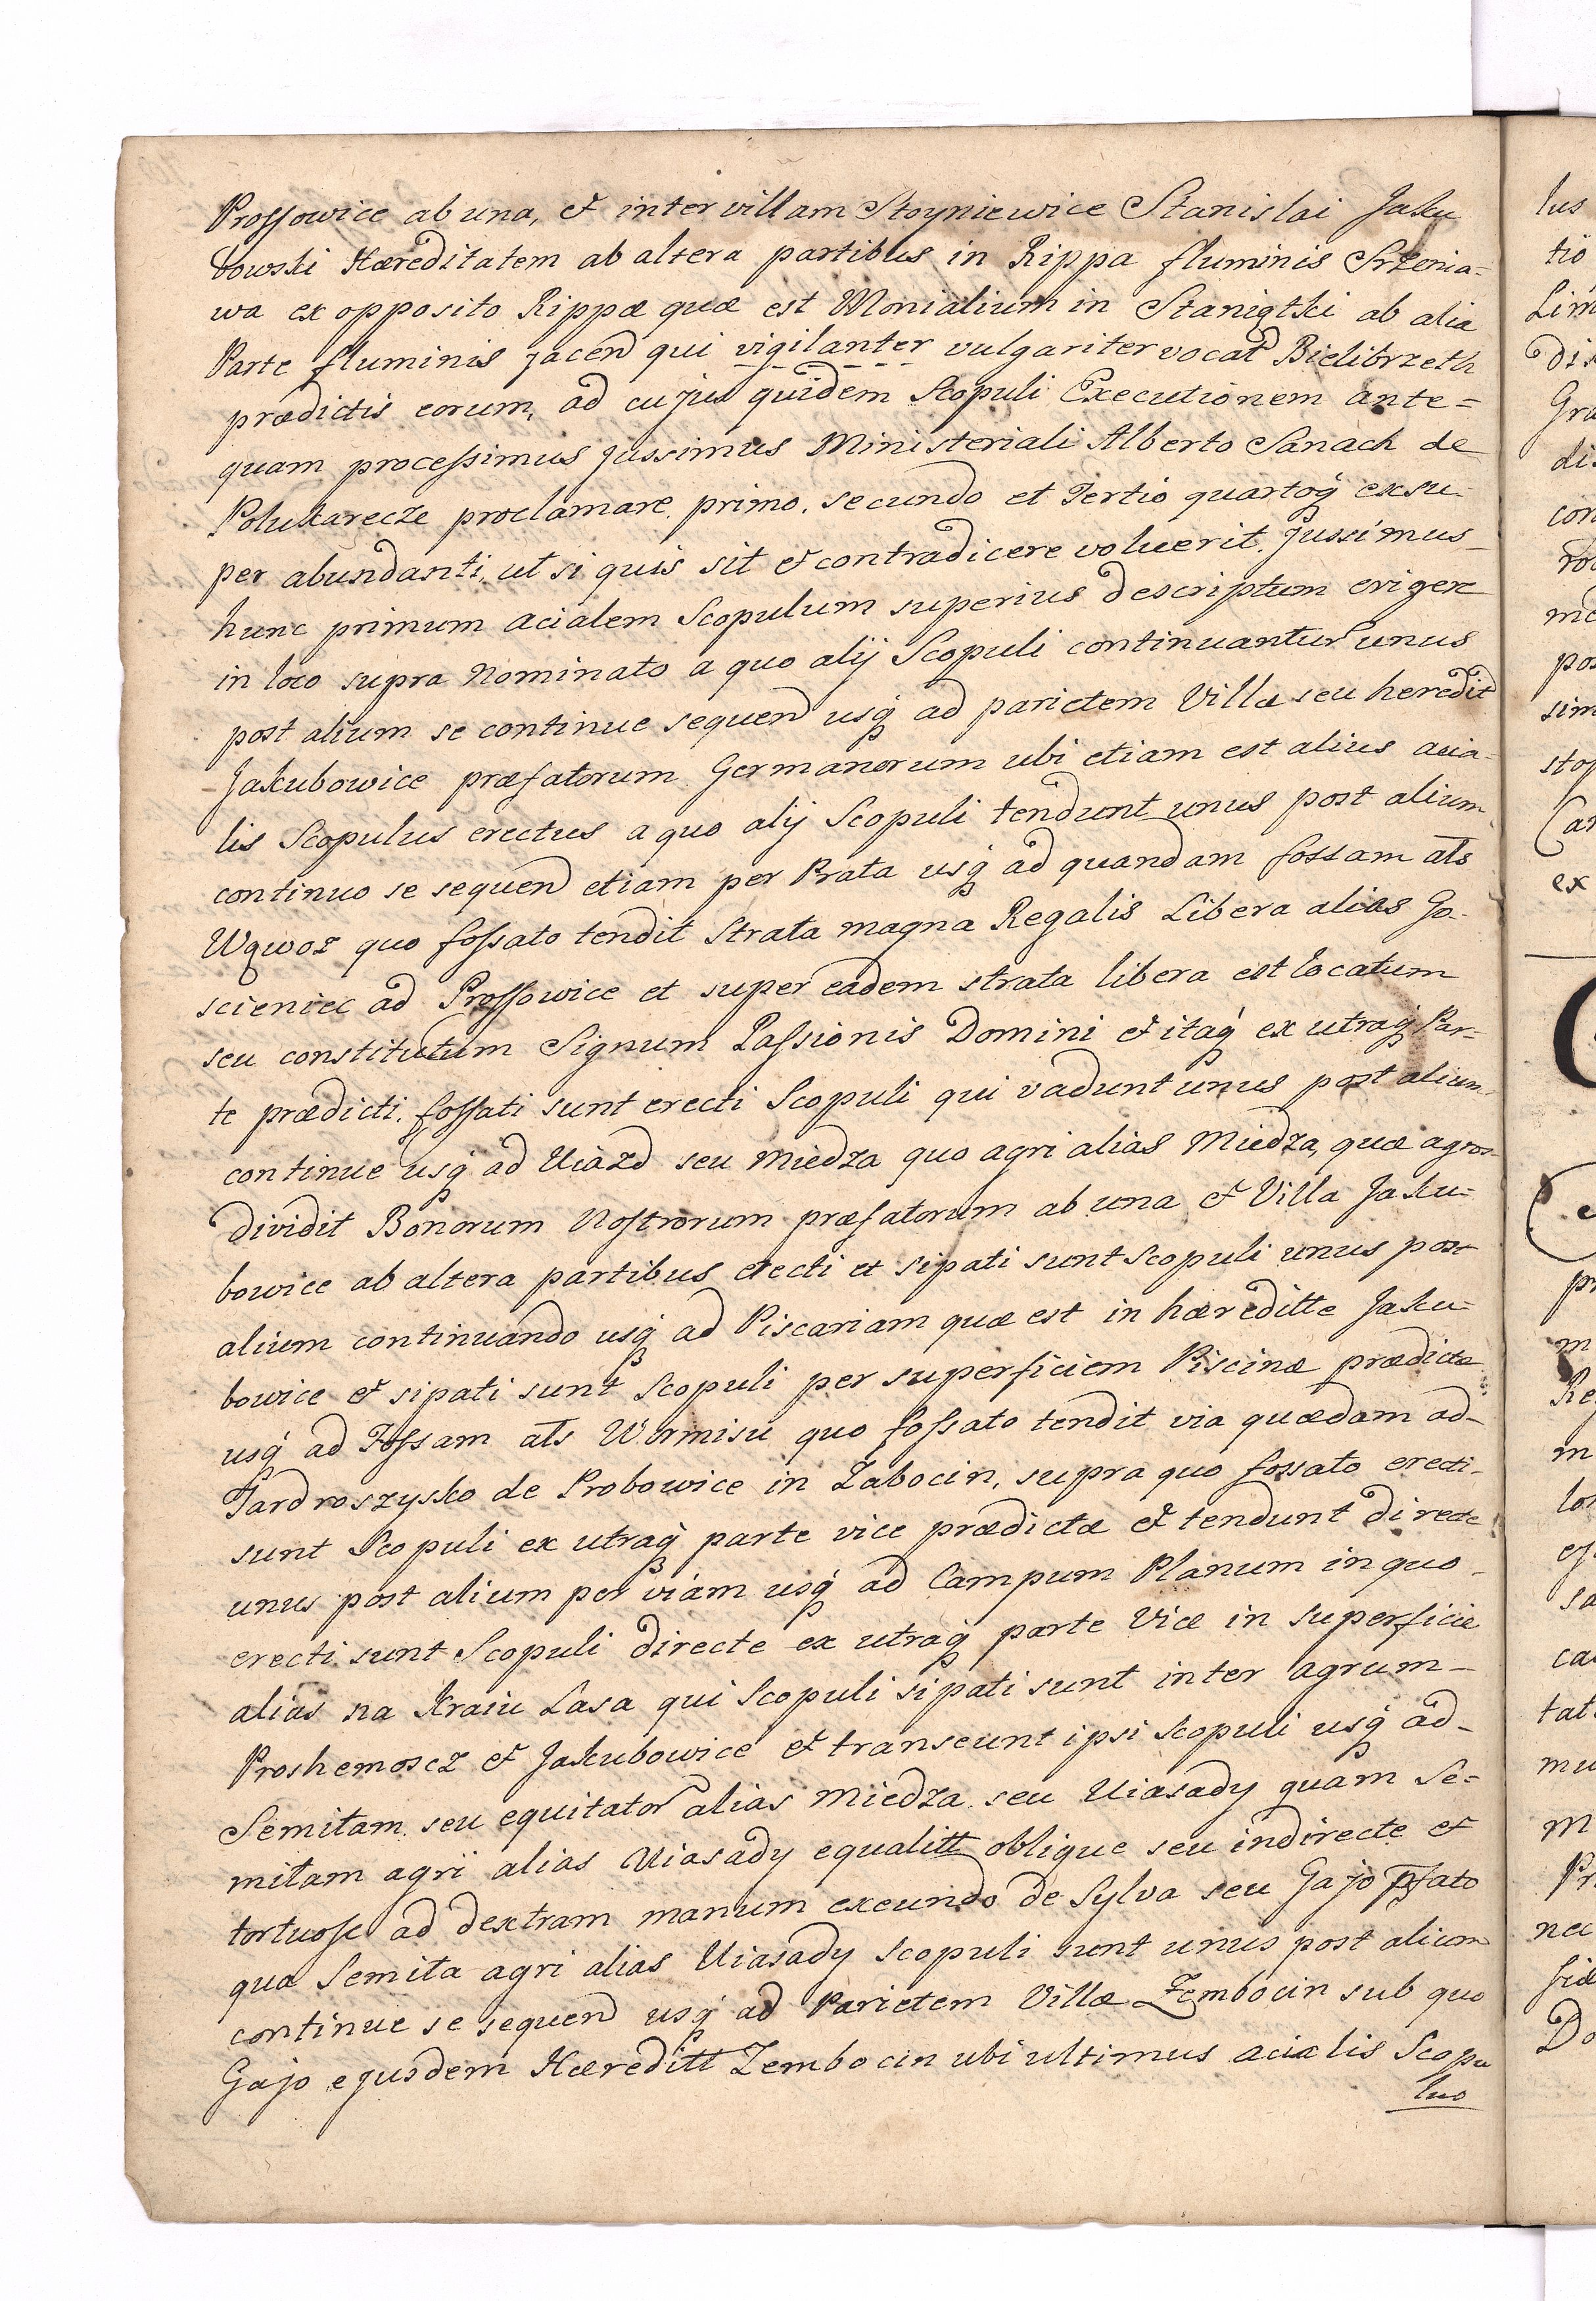 Prossowice ab una, et inter villam Stoyniewice Stanislai Jaku
bowski Hæreditatem ab altera partibus in Rippa fluminis Srzenia=
wa ex opposito Rippæ quæ est Monialium in Staniątki ab alia
Parte fluminis jacen qui vigilanter vulgariter vocat Bielibrzeth
prædictis eorum, ad cujus quidem Scopuli Executionem ante=
quam processimus jussimus Ministeriali Alberto Sanach de
Polukarecze proclamare primo, secundo et Tertio quartoq exsu-
per abundanti, ut si quis sit et contradicere voluerit. Jussimus
hunc primum acialem Scopulum superius descriptum erigere
in loco supra Nominato a quo alij Scopuli continuantur unus
post alium se continue sequen usq ad parietem Villæ seu heredit
Jakubowice præfatorum Germanorum ubi etiam est alius acia-
lis Scopulus erectus a quo alij Scopuli tendunt unus post alium
continuo se sequen etiam per Prata usq ad quandam fossam als
Wąwoz quo fossato tendit strata magna Regalis Libera alias Go-
scieniec ad Prossowice et super eadem strata libera est locatum
seu constitutum Signum Passionis Domini et itaq ex utraq Par-
te prædicti fossati sunt erecti Scopuli qui vadunt unus post alium
continue usq ad Uiazd seu Miedza quo agri alias Miedza, quæ agros
dividit Bonorum Nostrorum præfatorum ab una et Villa Jaku=
bowice ab altera partibus erecti et sipati sunt Scopuli unus post
alium continuando usq ad Piscariam quæ est in hæreditte Jaku=
bowice et sipati sunt Scopuli per superficiem Piscinæ prædictæ
usq ad Fossam als Wormisu quo fossato tendit via quædam ad-
Jardroszysko de Probowice in Zabocin, supra quo fossato erecti
sunt Scopuli ex utraq parte vice prædictæ et tendunt directe
unus post alium per viam usq ad Campum Planum in quo
erecti sunt Scopuli directe ex utraq parte Viæ in superficie
alias na Kraiu Lasa qui Scopuli sipati sunt inter agrum
Proshemoscz et Jakubowice et transeunt ipsi Scopuli usq ad-
Semitam seu equitator alias Miedza seu Uiasady quam Se=
mitam agri alias Uiasady equalitt oblique seu indirecte et
tortuose ad dextram manum exeundo de Sylva seu Gajo pfato
qua Semita agri alias Uiasady Scopuli sunt unus post alium
continue se sequen usq ad Parietem Villæ Zembocin sub quo
Gajo ejusdem Hæreditt Zembocin ubi ultimus acialis Scopu
lus
lus
tio
Lim
dis
Gra
con
pos
sim
stop
ex
pr
m
m
sa
tat
mu
m
Pr
nec
Do